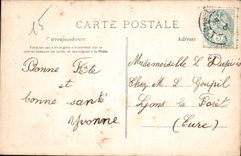 15
CARTE POSTALE
Correspondance
Adresse
Bonne Fête
et
bonne santé
Yvonne
Mademoiselle L. Dupuis
Chez M. L. Goupil
Lyons la Forêt
(Eure)